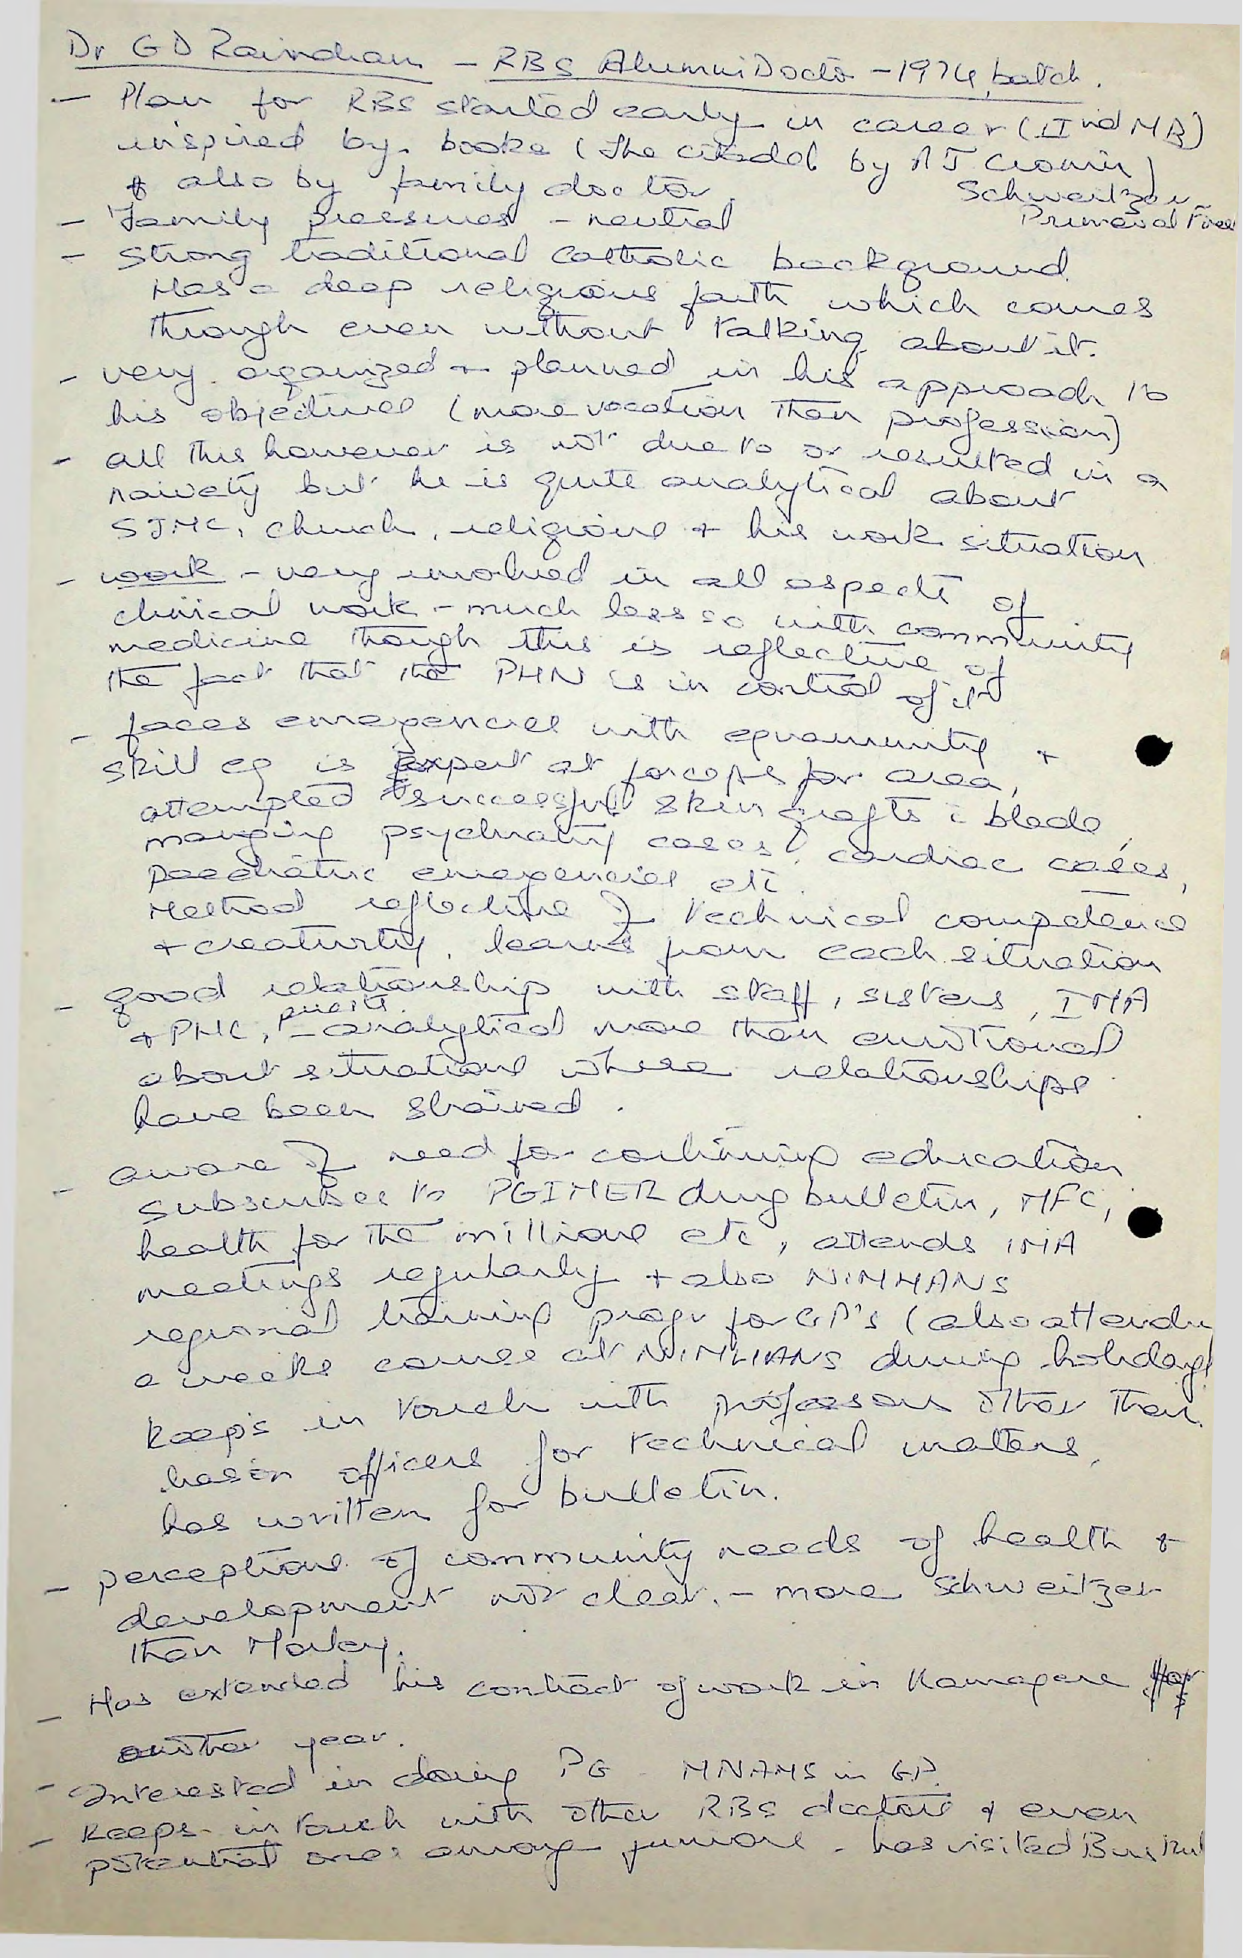 Dr G D Ravindran - RBS Alumni Doctor - 1974 batch.
- Plan for RBS started early in career (IInd MB)
inspired by books (The citadel by A J Cronin)
& also by family doctor. Schweitzer
Primeval
- Family pressures - neutral
- Strong traditional catholic background.
Has a deep religious faith which comes
through even without talking about it.
- very organized + planned in his approach to
his objectives (more vocation than profession)
- all this however is not due to or resulted in a
naivety but he is quite analytical about
SJMC, church, religious + his work situation
- work - very involved in all aspects of
clinical work - much less so with community
medicine though this is reflective of
the fact that the PHN is in control of it
- faces emergencies with equanimity +
skill eg is expert at forceps for area,
attempted successful skin grafts c blade,
managing psychiatry cases, cardiac cases,
paediatric emergencies etc.
Method reflective of technical competence
+ creativity, learns from each situation
- good relationship with staff, sisters, IMA
priests
+ PHC, - analytical more than emotional
about situations where relationships
have been strained.
- aware of need for continuing education
subscribes to PGIMER drug bulletin, MFC,
health for the millions etc, attends IMA
meetings regularly + also NIMHANS
regional training progr for GP's (also attended
a weeks course at NIMHANS during holidays
keeps in touch with professors other than
liason officers for technical matters,
has written for bulletin.
- perceptions of community needs of health +
development not clear. - more Schweitzer
than Morley.
- Has extended his contract of work in Kamagere for
another year.
- Interested in doing PG - MNAMS in GP.
- Keeps in touch with other RBS doctors & even
potential ones among juniors - has visited